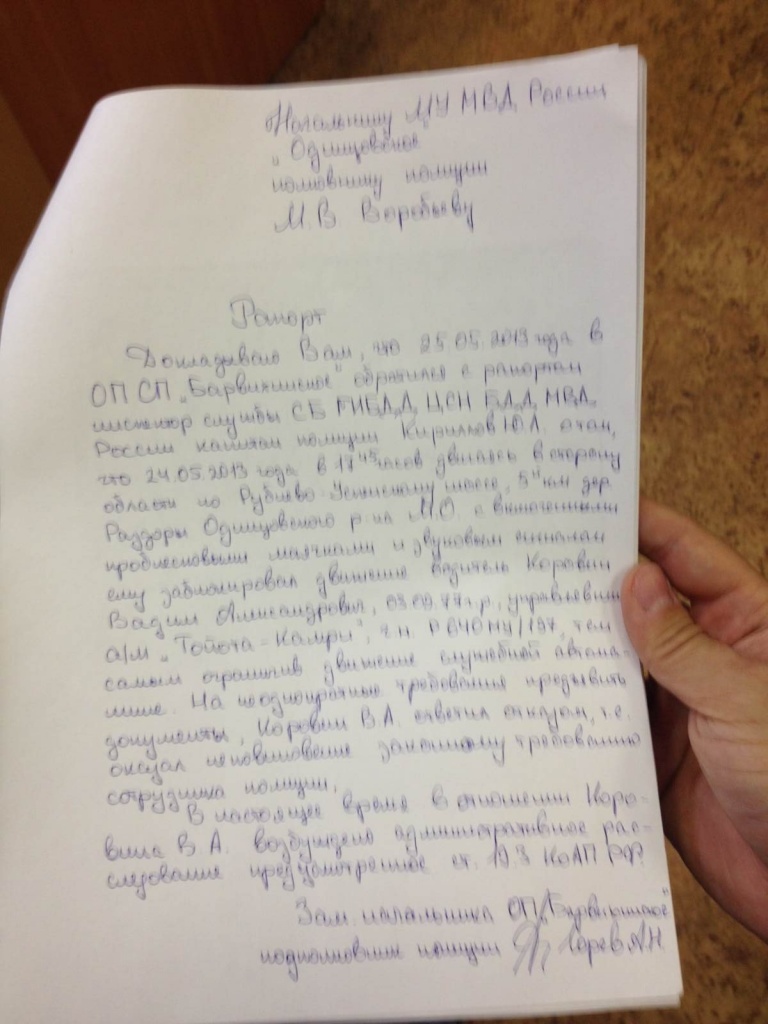 Начальнику МУ МВД России
„Одинцовское
полковнику полиции
М.В Воробьеву
Рапорт
Докладываю Вам, что 25.05.2013 года в
ОП СП „Барвихинское" обратился с рапортом
инспектор службы СБ ГИБДД ЦСН БДД МВД
России капитан полиции Кириллов Ю.Л. о том,
что 24.05.2013 года в 17 45 часов двигаясь в сторону
области по Рублево-Успенскому шоссе, 5й км дер.
Раздоры Одинцовского р-на М.О. с включенными
проблесковыми маячками и звуковым сигналом
ему заблокировал движение водитель Коровин
Вадим Александрович, 03.09.77 г.р, управлявший
а/м „Тойота-Камри", г.н. Р640МУ/197, тем
самым ограничив движение служебной автома-
шине. На неоднократные требования предъявить
документы, Коровин В.А. ответил отказом, т.е.
оказал неповиновение законному требованию
сотрудника полиции.
В настоящее время в отношении Коро-
вина В А. возбуждено административное рас-
следование предусмотренное ст. 19.3 КоАП РФ
Зам. начальника ОП „Барвихинское"
подполковник полиции А.Н.